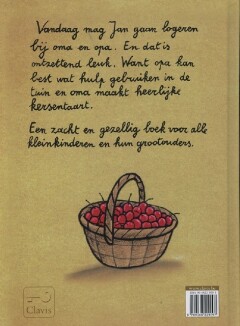 Vandaag mag Jan gaan logeren
bij oma en opa. En dat is
ontzettend leuk. Want opa kan
best wat hulp gebruiken in de
tuin en oma maakt heerlijke
kersentaart.
Een zacht en gezellig boek voor alle
kleinkinderen en hun grootouders.
Clavis